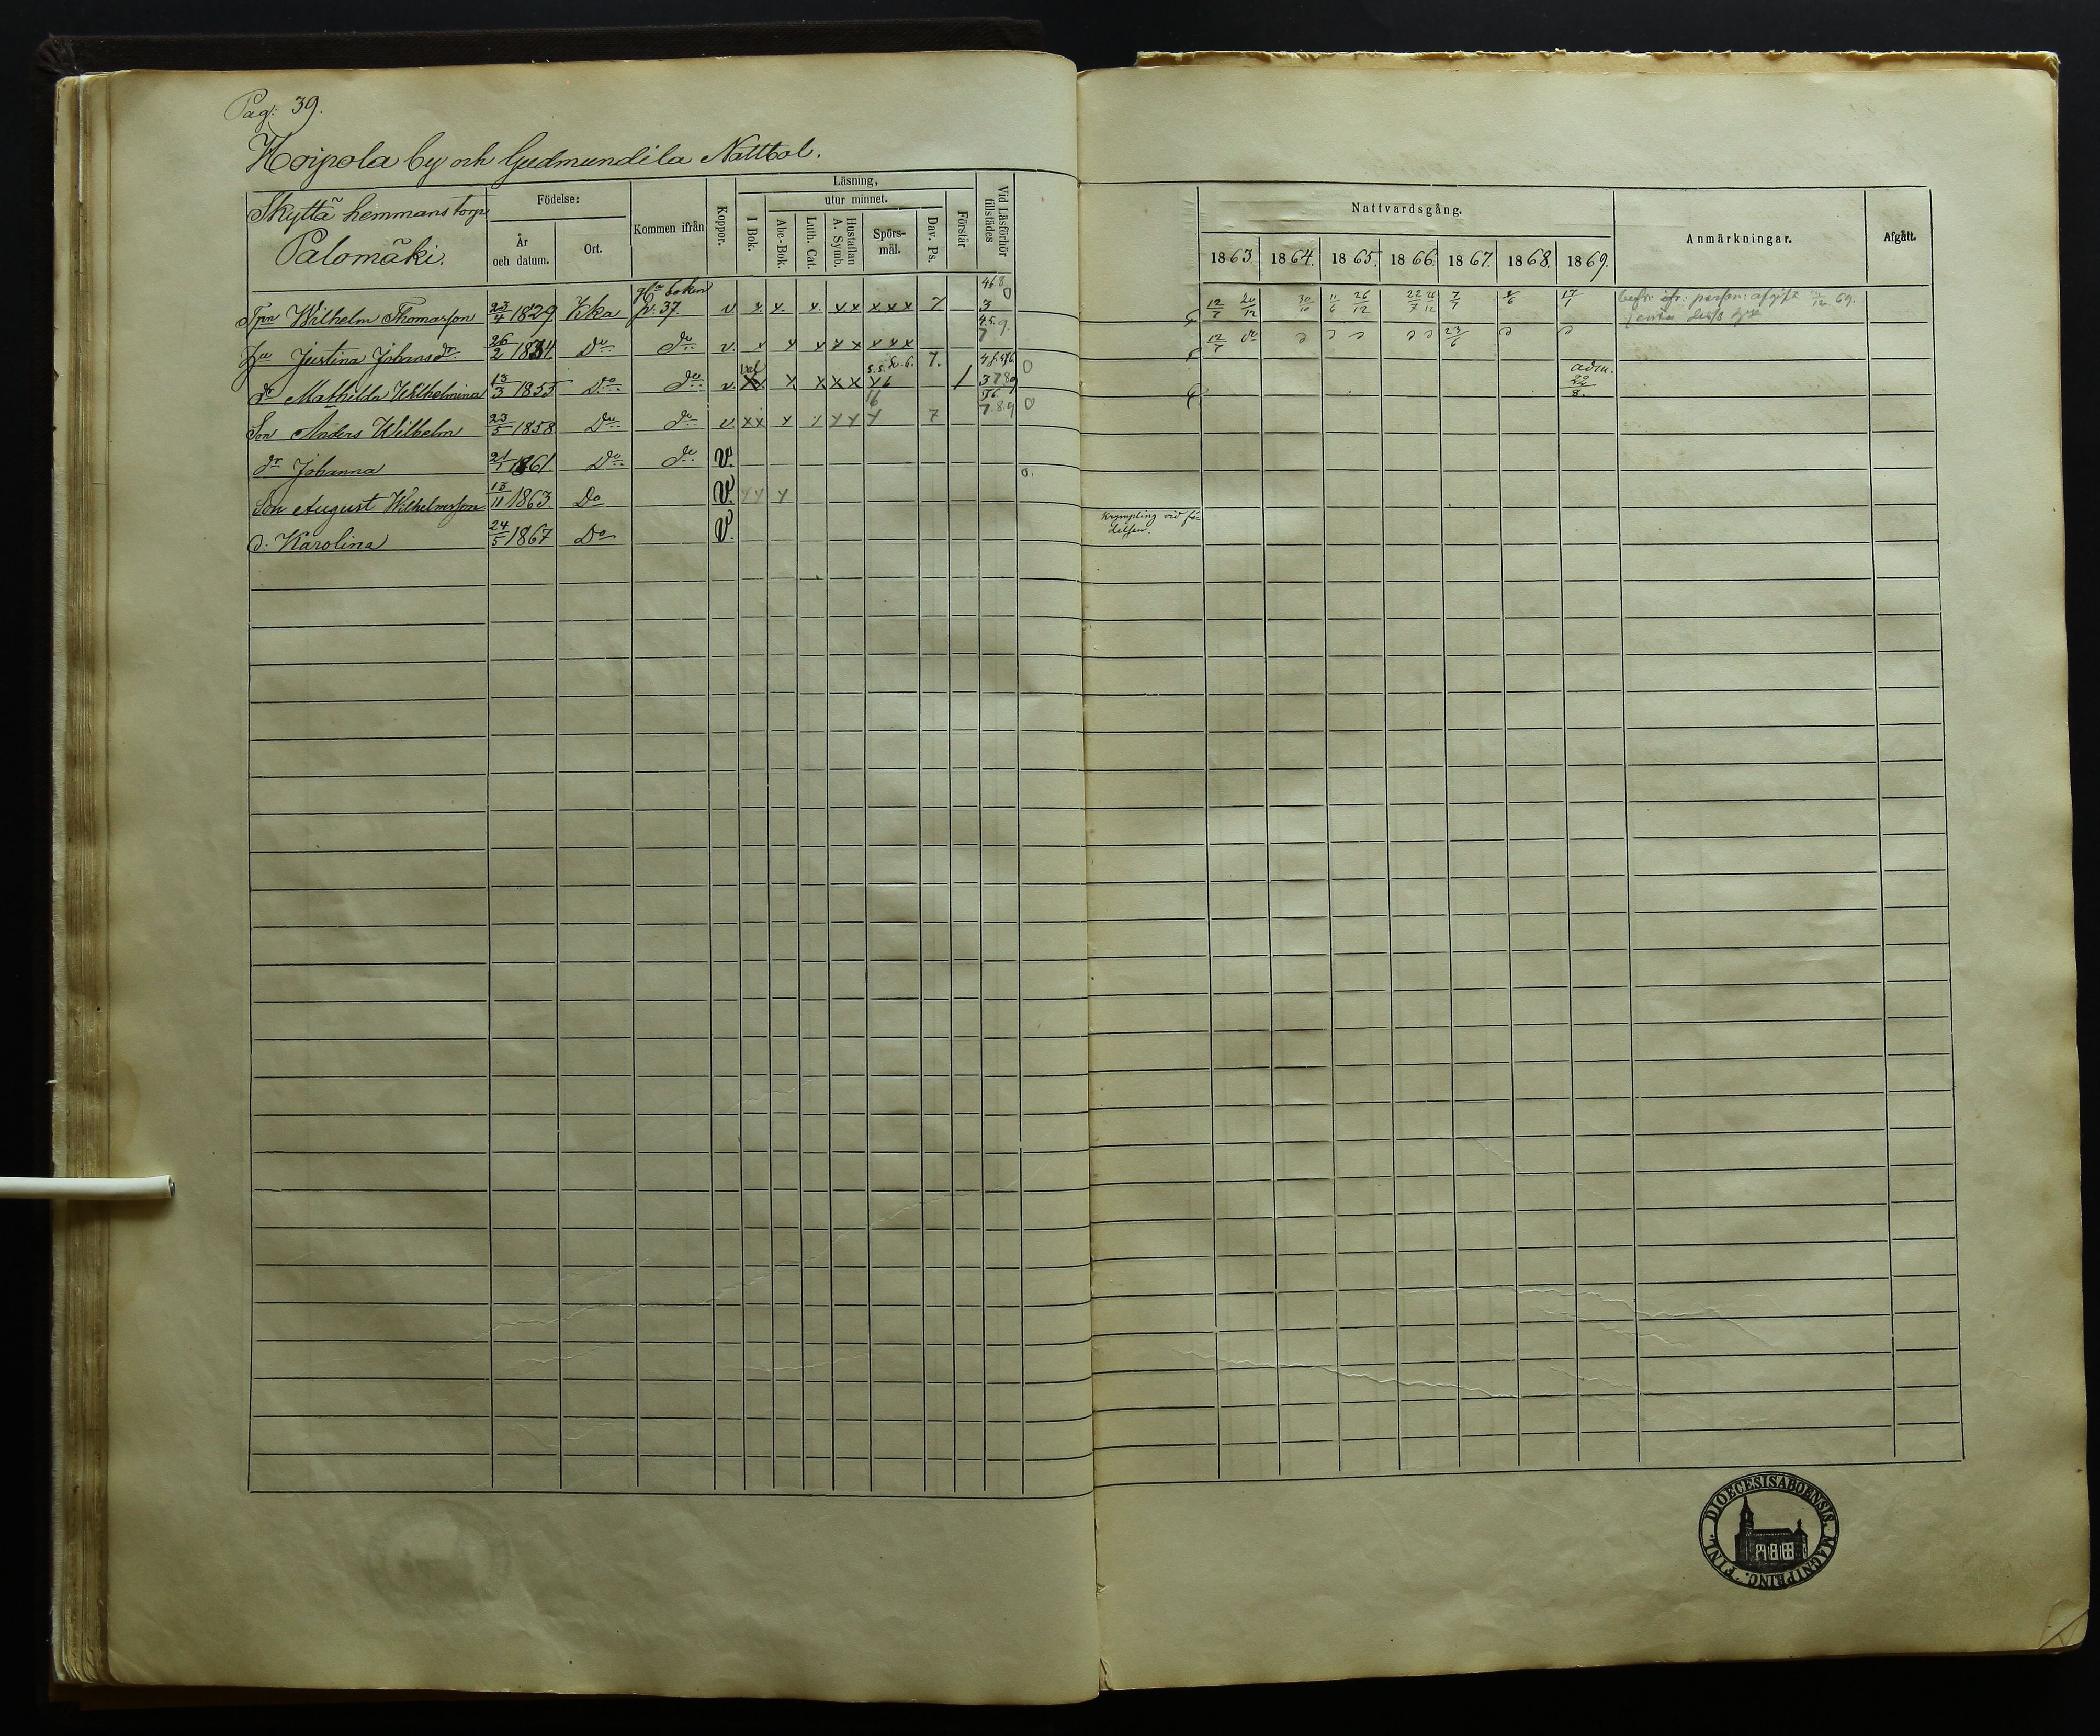 Pag: 39.
Koipola by och Gudmundila Nattbol.
Skyttä hemmans torp
Palomäki.
Födelse:
År och datum.
Ort.
Kommen ifrån
Koppor.
Läsning,
utur minnet.
I Bok.
Abc-Bok.
Luth. Cat.
Hustaflan A. Symb.
Spörsmål.
Dav. Ps.
Förstår
Vid Läsförhör tillstädes
Nattvardsgång.
1863. 1864. 1865. 1866. 1867. 1868. 1869.
Anmärkningar.
Afgått.
Wilhelm Thomasson 23/4 1829 Kka boken p. 37 v x x. x. x x x x x 7 468 3 0 12/7 20/12 30/10 11/6 26/12 22/7 26/12 7/7 17/1 69.
Justina Johansdr. 26/2 1834 Do do v. x x x x x x x x 4.5.9. 7 12/7 23/6
dr Mathilda Wilhelmina 13/3 1855 Do do v. x x x x 7. 1 3789 0 adm. 22/8.
Son Anders Wilhelm 23/5 1858 Do do v x x x x x x x 7 7.8.9 0
dr Johanna 21/1 1861 Do do v.
Son August Wilhelmsson 13/11 1863. Do v. x x x 0.
d. Karolina 24/5 1867 Do v. Krympling vid födelsen.
DIOECESIS ABOENSIS. MAGNI PRINC. FINL.